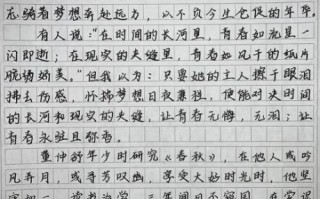 忘骑着梦想奔赴远方，以不负今生仓促的年华。
有人说："在时间的长河里，青春如流星一
闪即逝；在现实的夹缝里，青春如风干的纸片
脆弱的美。"但我以为：只要她的主人擦干眼泪
拂去伤感，怀揣梦想日夜兼程，便能对决时间
的长河和现实的夹缝，让青春无悔，无泪；让
青春永驻且弥香。
董仲舒年少时研究《春秋》，在他人或吟
风弄月，或寻芳叹幽，享受大好时光时，他坚